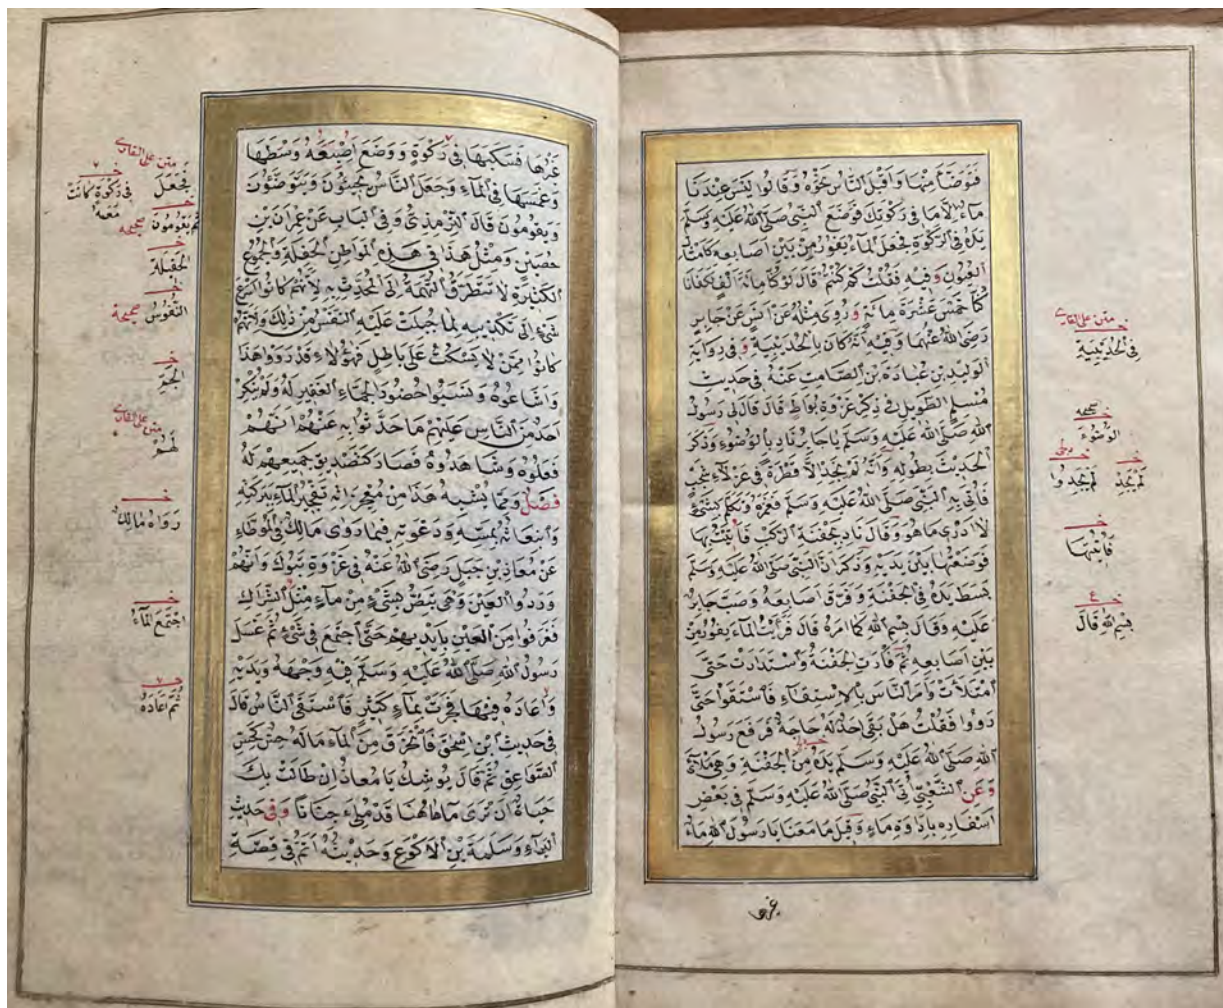 فَتَوَضَّأَ مِنْهَا وَأَقْبَلَ النَّاسُ نَحْوَهُ وَقَالُوا لَيْسَ عِنْدَنَا
مَاءٌ إِلَّا مَا فِي رَكْوَتِكَ فَوَضَعَ النَّبِيُّ صَلَّى اللهُ عَلَيْهِ وَسَلَّمَ
يَدَهُ فِي الرَّكْوَةِ فَجَعَلَ الْمَاءُ يَفُورُ مِنْ بَيْنِ أَصَابِعِهِ كَأَمْثَالِ
الْعُيُونِ وَفِيهِ فَقُلْتُ كَمْ كُنْتُمْ قَالَ لَوْ كُنَّا مِائَةَ أَلْفٍ لَكَفَانَا
كُنَّا خَمْسَ عَشْرَةَ مِائَةً وَرُوِيَ مِثْلُهُ عَنْ أَنَسٍ عَنْ جَابِرٍ
رَضِيَ اللهُ عَنْهُمَا وَفِيهِ أَنَّهُ كَانَ بِالْحُدَيْبِيَةِ وَفِي رِوَايَةِ
الْوَلِيدِ بْنِ عُبَادَةَ بْنِ الصَّامِتِ عَنْهُ فِي حَدِيثِ
مُسْلِمٍ الطَّوِيلِ فِي ذِكْرِ غَزْوَةِ بُوَاطَ قَالَ قَالَ لِي رَسُولُ
اللهِ صَلَّى اللهُ عَلَيْهِ وَسَلَّمَ يَا جَابِرُ نَادِ بِالْوَضُوءِ وَذَكَرَ
الْحَدِيثَ بِطُولِهِ وَأَنَّهُ لَمْ يَجِدْ إِلَّا قَطْرَةً فِي عَزْلَاءِ شَجْبٍ
فَأُتِيَ بِهِ النَّبِيُّ صَلَّى اللهُ عَلَيْهِ وَسَلَّمَ فَغَمَزَهُ وَتَكَلَّمَ بِشَيْءٍ
لَا أَدْرِي مَا هُوَ وَقَالَ نَادِ بِجَفْنَةِ الرَّكْبِ فَأُتِيتُ بِهَا
فَوَضَعْتُهَا بَيْنَ يَدَيْهِ وَذَكَرَ أَنَّ النَّبِيَّ صَلَّى اللهُ عَلَيْهِ وَسَلَّمَ
بَسَطَ يَدَهُ فِي الْجَفْنَةِ وَفَرَّقَ أَصَابِعَهُ وَصَبَّ جَابِرٌ
عَلَيْهِ وَقَالَ بِسْمِ اللهِ كَمَا أَمَرَهُ قَالَ فَرَأَيْتُ الْمَاءَ يَفُورُ مِنْ
بَيْنِ أَصَابِعِهِ ثُمَّ فَارَتِ الْجَفْنَةُ وَاسْتَدَارَتْ حَتَّى
امْتَلَأَتْ وَأَمَرَ النَّاسَ بِالِاسْتِقَاءِ فَاسْتَقَوْا حَتَّى
رَوُوا فَقُلْتُ هَلْ بَقِيَ أَحَدٌ لَهُ حَاجَةٌ فَرَفَعَ رَسُولُ
اللهِ صَلَّى اللهُ عَلَيْهِ وَسَلَّمَ يَدَهُ مِنَ الْجَفْنَةِ وَهِيَ مَلْأَى
وَعَنِ الشَّعْبِيِّ أُتِيَ النَّبِيُّ صَلَّى اللهُ عَلَيْهِ وَسَلَّمَ فِي بَعْضِ
أَسْفَارِهِ بِإِدَاوَةِ مَاءٍ وَقِيلَ مَا مَعَنَا يَا رَسُولَ اللهِ مَاءٌ
غيرها
متن على القارى
فِي الْحُدَيْبِيَةِ
صححه
الْوَضُوءَ
لَمْ نَجِدْ
لَمْ يَجِدُوا
فَأَتَيْتُهَا
بِسْمِ اللهِ قَالَ
غَيْرُهَا فَسَكَبَهَا فِي رَكْوَةٍ وَوَضَعَ إِصْبَعَهُ وَسْطَهَا
وَغَمَسَهَا فِي الْمَاءِ وَجَعَلَ النَّاسُ يَجِيئُونَ وَيَتَوَضَّؤُنَ
وَيَقُومُونَ قَالَ التِّرْمِذِيُّ وَفِي الْبَابِ عَنْ عِمْرَانَ بْنِ
حُصَيْنٍ وَمِثْلُ هَذَا فِي هَذِهِ الْمَوَاطِنِ الْحَفِلَةِ وَالْجُمُوعِ
الْكَثِيرَةِ لَا تَتَطَرَّقُ التُّهْمَةُ إِلَى الْمُحَدِّثِ بِهِ لِأَنَّهُمْ كَانُوا أَسْرَعَ
شَيْءٍ إِلَى تَكْذِيبِهِ لِمَا جُبِلَتْ عَلَيْهِ النَّفْسُ مِنْ ذَلِكَ وَلِأَنَّهُمْ
كَانُوا مِمَّنْ لَا يَسْكُتُ عَلَى بَاطِلٍ فَهَؤُلَاءِ قَدْ رَوَوْا هَذَا
وَأَشَاعُوهُ وَنَسَبُوا حُضُورَ الْجَمَّاءِ الْغَفِيرِ لَهُ وَلَمْ يُنْكِرْ
أَحَدٌ مِنَ النَّاسِ عَلَيْهِمْ مَا حَدَّثُوا بِهِ عَنْهُمْ أَنَّهُمْ
فَعَلُوهُ وَشَاهَدُوهُ فَصَارَ كَتَصْدِيقِ جَمِيعِهِمْ لَهُ
فَصْلٌ وَمِمَّا يُشْبِهُ هَذَا مِنْ مُعْجِزَاتِهِ تَفْجِيرُ الْمَاءِ بِبَرَكَتِهِ
وَانْبِعَاثُهُ بِمَسِّهِ وَدَعْوَتِهِ فِيمَا رَوَى مَالِكٌ فِي الْمُوَطَّاءِ
عَنْ مُعَاذِ بْنِ جَبَلٍ رَضِيَ اللهُ عَنْهُ فِي غَزْوَةِ تَبُوكَ وَأَنَّهُمْ
وَرَدُوا الْعَيْنَ وَهِيَ تَبِضُّ بِشَيْءٍ مِنْ مَاءٍ مِثْلِ الشِّرَاكِ
فَغَرَفُوا مِنَ الْعَيْنِ بِأَيْدِيهِمْ حَتَّى اجْتَمَعَ فِي شَيْءٍ ثُمَّ غَسَلَ
رَسُولُ اللهِ صَلَّى اللهُ عَلَيْهِ وَسَلَّمَ فِيهِ وَجْهَهُ وَيَدَيْهِ
وَأَعَادَهُ فِيهَا فَجَرَتْ بِمَاءٍ كَثِيرٍ فَاسْتَقَى النَّاسُ قَالَ
فِي حَدِيثِ ابْنِ إِسْحَقَ فَانْخَرَقَ مِنَ الْمَاءِ مَا لَهُ حِسٌّ كَحِسِّ
الصَّوَاعِقِ ثُمَّ قَالَ يُوشِكُ يَا مُعَاذُ إِنْ طَالَتْ بِكَ
حَيَاةٌ أَنْ تَرَى مَا هَاهُنَا قَدْ مُلِئَ جِنَانًا وَفِي حَدِيثِ
الْبَرَاءِ وَسَلَمَةَ بْنِ الْأَكْوَعِ وَحَدِيثُهُ أَتَمُّ فِي قِصَّةِ
متن على القارى
فَجَعَلَ
فِي رَكْوَةٍ كَانَتْ مَعَهُ
ثُمَّ يَقُومُونَ صححه
الْحَفِيلَةِ
النُّفُوسُ صححه
الْجَمِّ
متن على القارى
لَهُمْ
رَوَاهُ مَالِكٌ
اجْتَمَعَ الْمَاءُ
ثُمَّ أَعَادَهُ